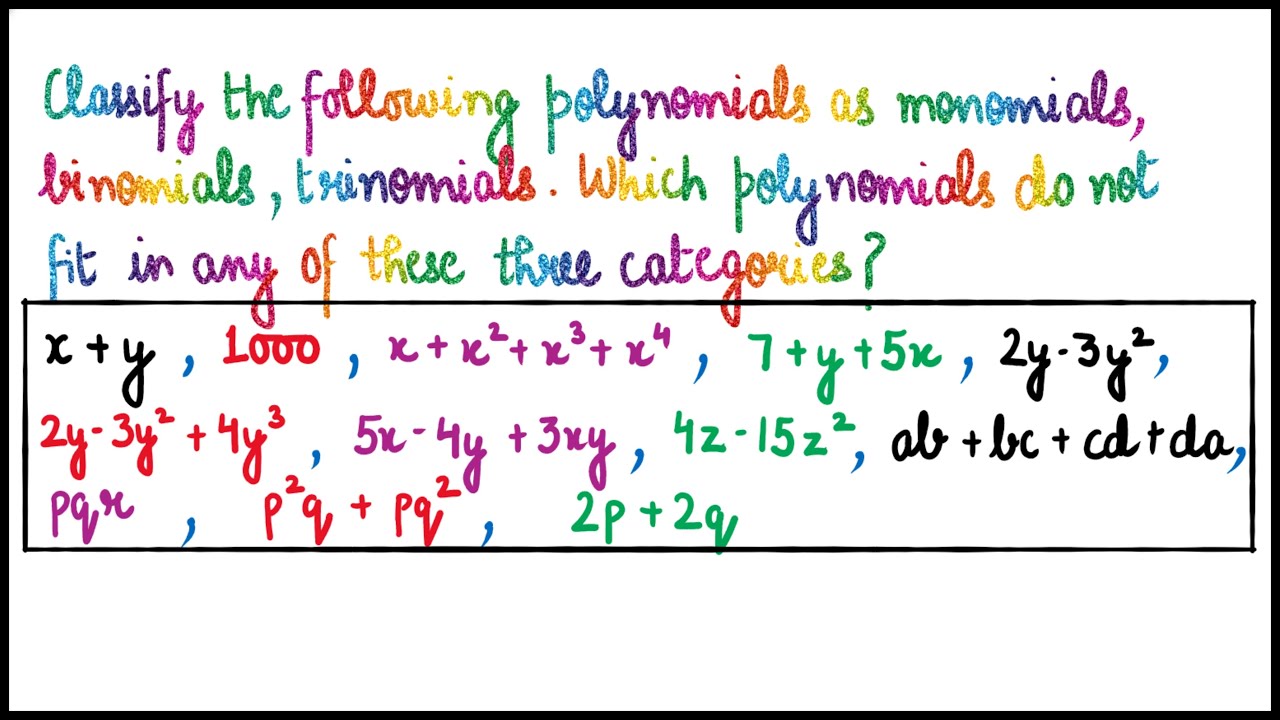 Classify the following polynomials as monomials,
binomials, trinomials. Which polynomials do not
fit in any of these three categories?
x + y , 1000 , x + x² + x³ + x⁴ , 7 + y + 5x , 2y - 3y² ,
2y - 3y² + 4y³ , 5x - 4y + 3xy , 4z - 15z² , ab + bc + cd + da,
pqr , p²q + pq² , 2p + 2q